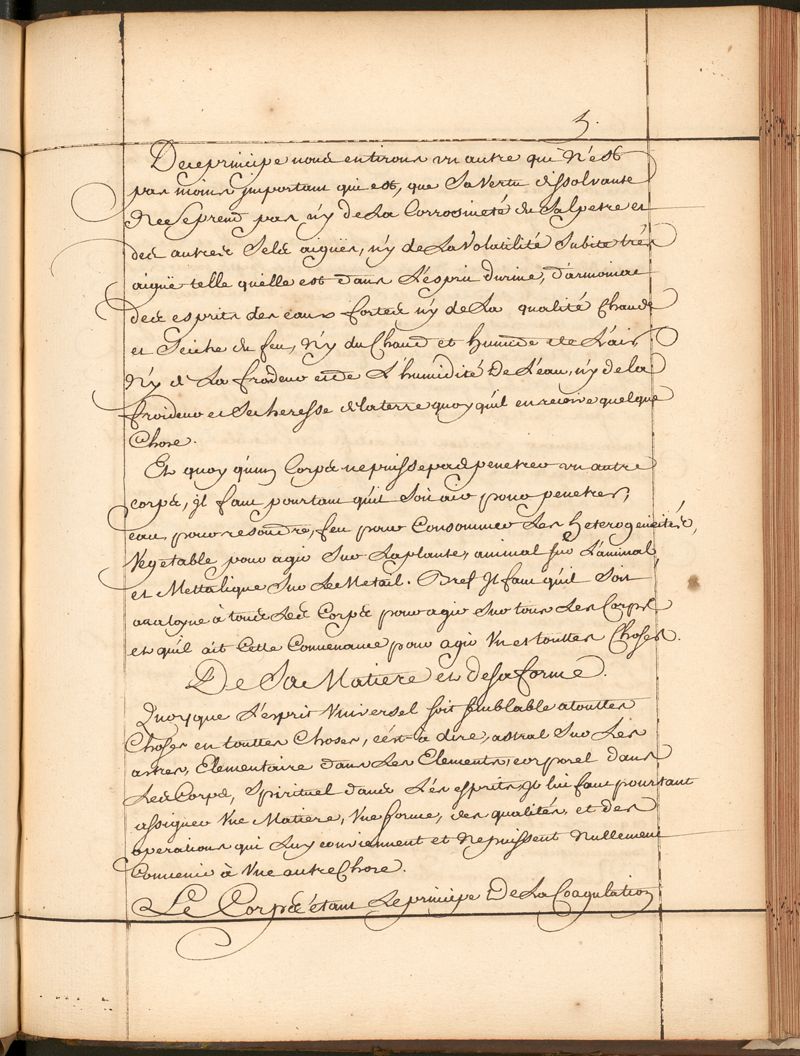 5.
De ce principe nous en tirons un autre qui N'est
pas moins jmportant qui est, que Sa Vertu dissolvante
Ne se prend pas n'y de La Corrosiveté du Salpetre et
des autres Sels aigües, n'y de La Volatilité Subite très
aigüe telle quelle est dans L'esprit d'urine, d'armoniac
des esprits des eaux fortes n'y de La qualité Chaude
et Seiche du feu, N'y du Chaud et humide de L'air
N'y d La froideur et de L'humidité De L'eau, n'y de la
froideur et Secheresse de la terre quoy qu'il en recoive quelque
Chose.
Et quoy qu'un Corps ne puisse pas penetrer un autre
corps, jl faut pourtant qu'il Soit air pour penetrer,
eau pour resoudre, feu pour Consommer Les heterogeneités,
Vegetable pour agir Sur La plante, animal sur L'animal
et Mettalique Sur Le Metail. Bref Jl faut qu'il Soit
analogue à tous Les Corps pour agir Sur tous Les Corps
et qu'il ait Cette Convenance pour agir en touttes Choses.
De Sa Matiere et de sa forme.
Quoyque L'esprit Universel soit semblable a touttes
Choses en touttes Choses, cést-à dire, astral Sur Les
astres, Elementaire dans Les Elements, corporel dans
Les Corps, Spirituel dans Les esprits, Jl lui faut pourtant
assigner Une Matiere, Une forme, des qualités, et des
operations qui Luy conviennent et Ne puissent Nullement
Convenir à Une autre Chose.
Le Corps étant Le principe De La Coagulation